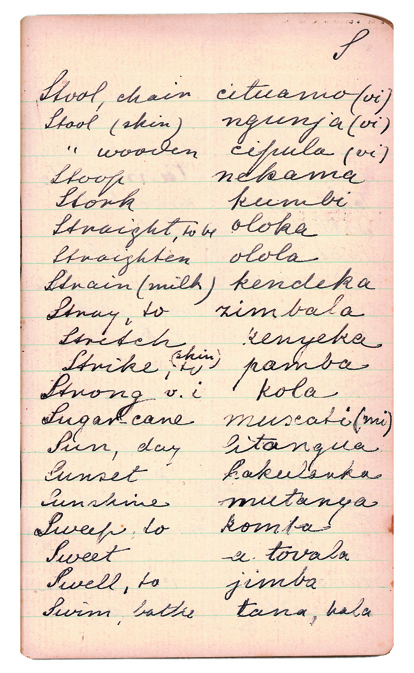 S
Stool, chair cituamo (vi)
Stool (skin) ngunja (vi)
" wooden cipula (vi)
Stoop nekama
Stork kumbi
Straight, to be oloka
Straighten olola
Strain (milk) kendeka
Stray, to zimbala
Stretch kenyeka
Strike, to (skin) pamba
Strong v.i kola
Sugar cane muscati (mi)
Sun, day litangua
Sunset
Sunshine mutanya
Sweep, to komba
Sweet a. tovala
Swell, to jimba
Swim, bathe tana, bala